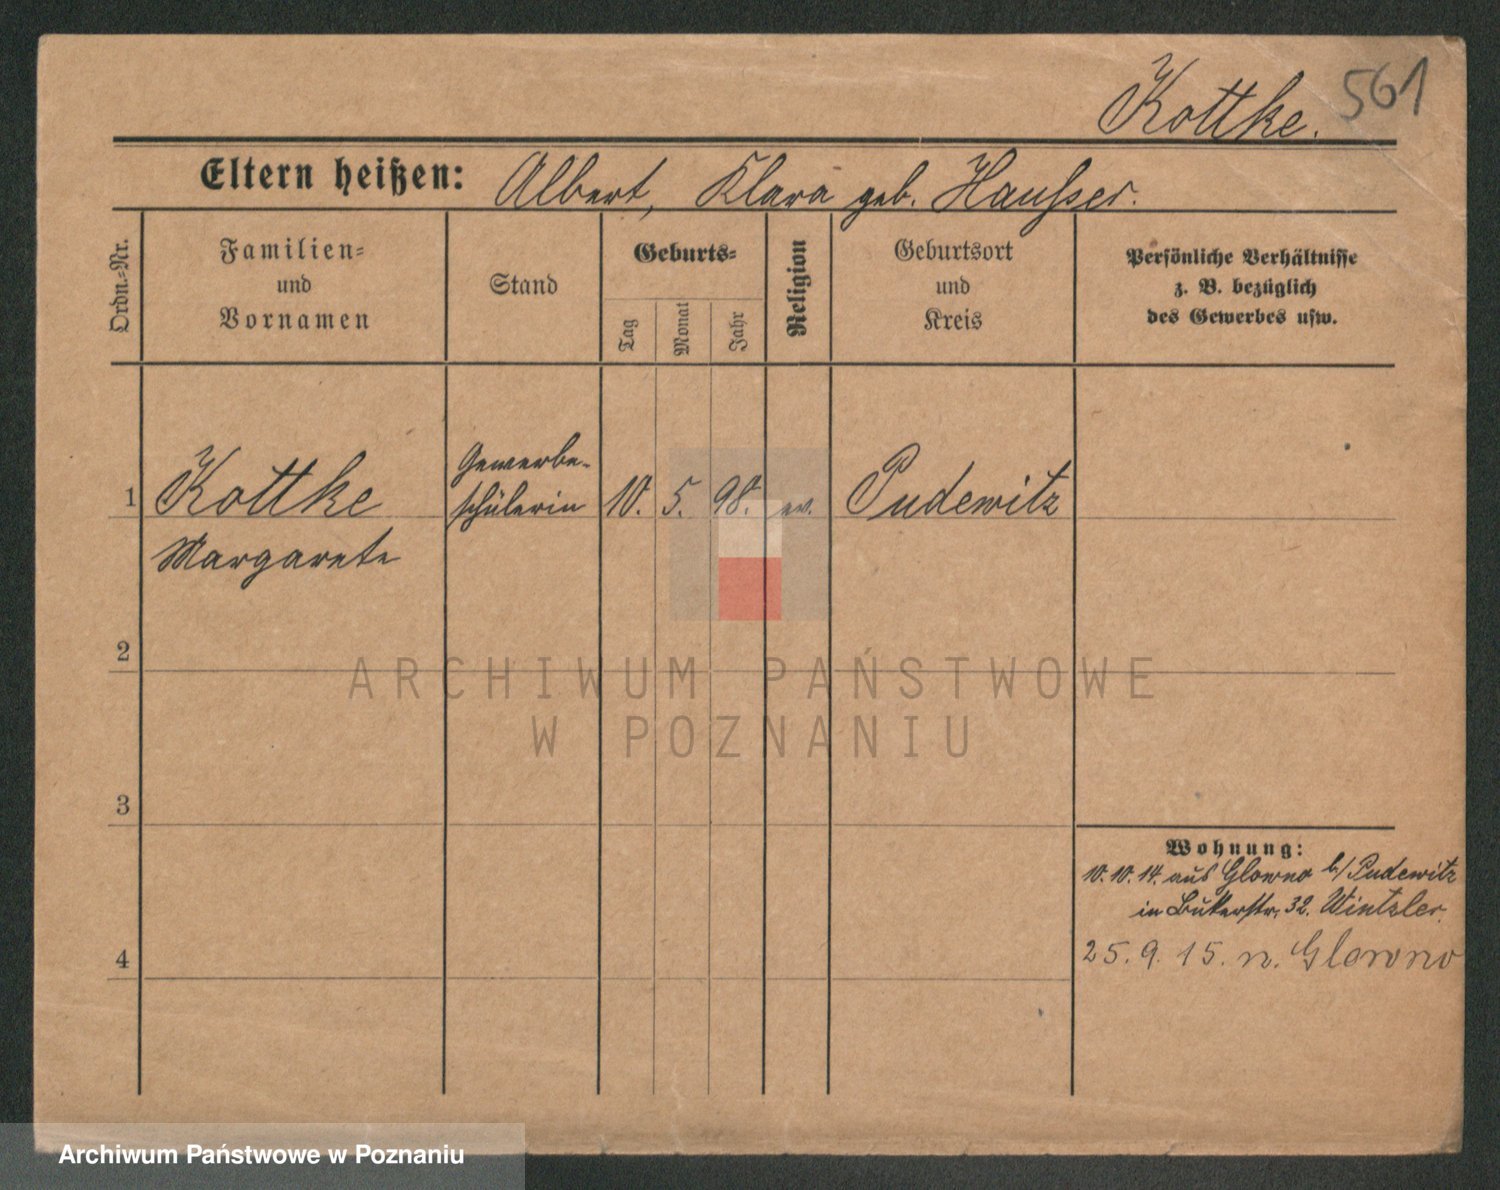 Kottke. 561
Eltern heißen: Albert, Klara geb. Hausser.
Ordn.-Nr.
Familien-
und
Vornamen
Stand
Geburts-
Tag
Monat
Jahr
Religion
Geburtsort
und
Kreis
Persönliche Verhältnisse
z. B. bezüglich
des Gewerbes usw.
1 Kottke Gewerbe-
schülerin 10. 5. 98. ev. Pudewitz
Margarete
2
ARCHIWUM PAŃSTWOWE
W POZNANIU
3
Wohnung:
10.10.14. aus Glowno b/Pudewitz
in Bukerstr. 32. Wintzler.
4
25.9.15. n. Glowno
Archiwum Państwowe w Poznaniu